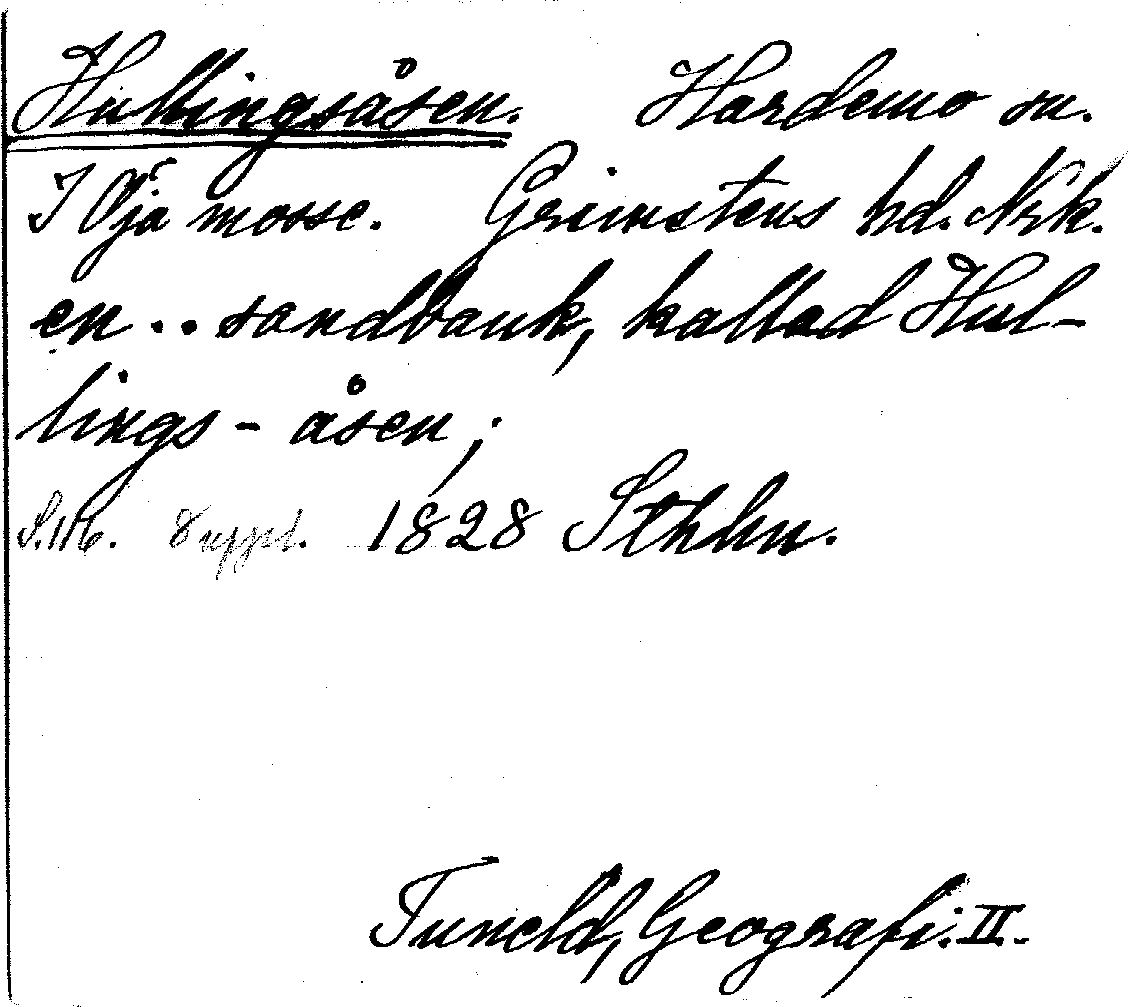 Hullingsåsen. Hardemo sn.
I Öja mosse. Grimstens hd. Nrk.
en .. sandbank, kallad Hul-
lings - åsen;
S. 116. Suppl. 1828 Sthlm.
Tuneld, Geografi. II.